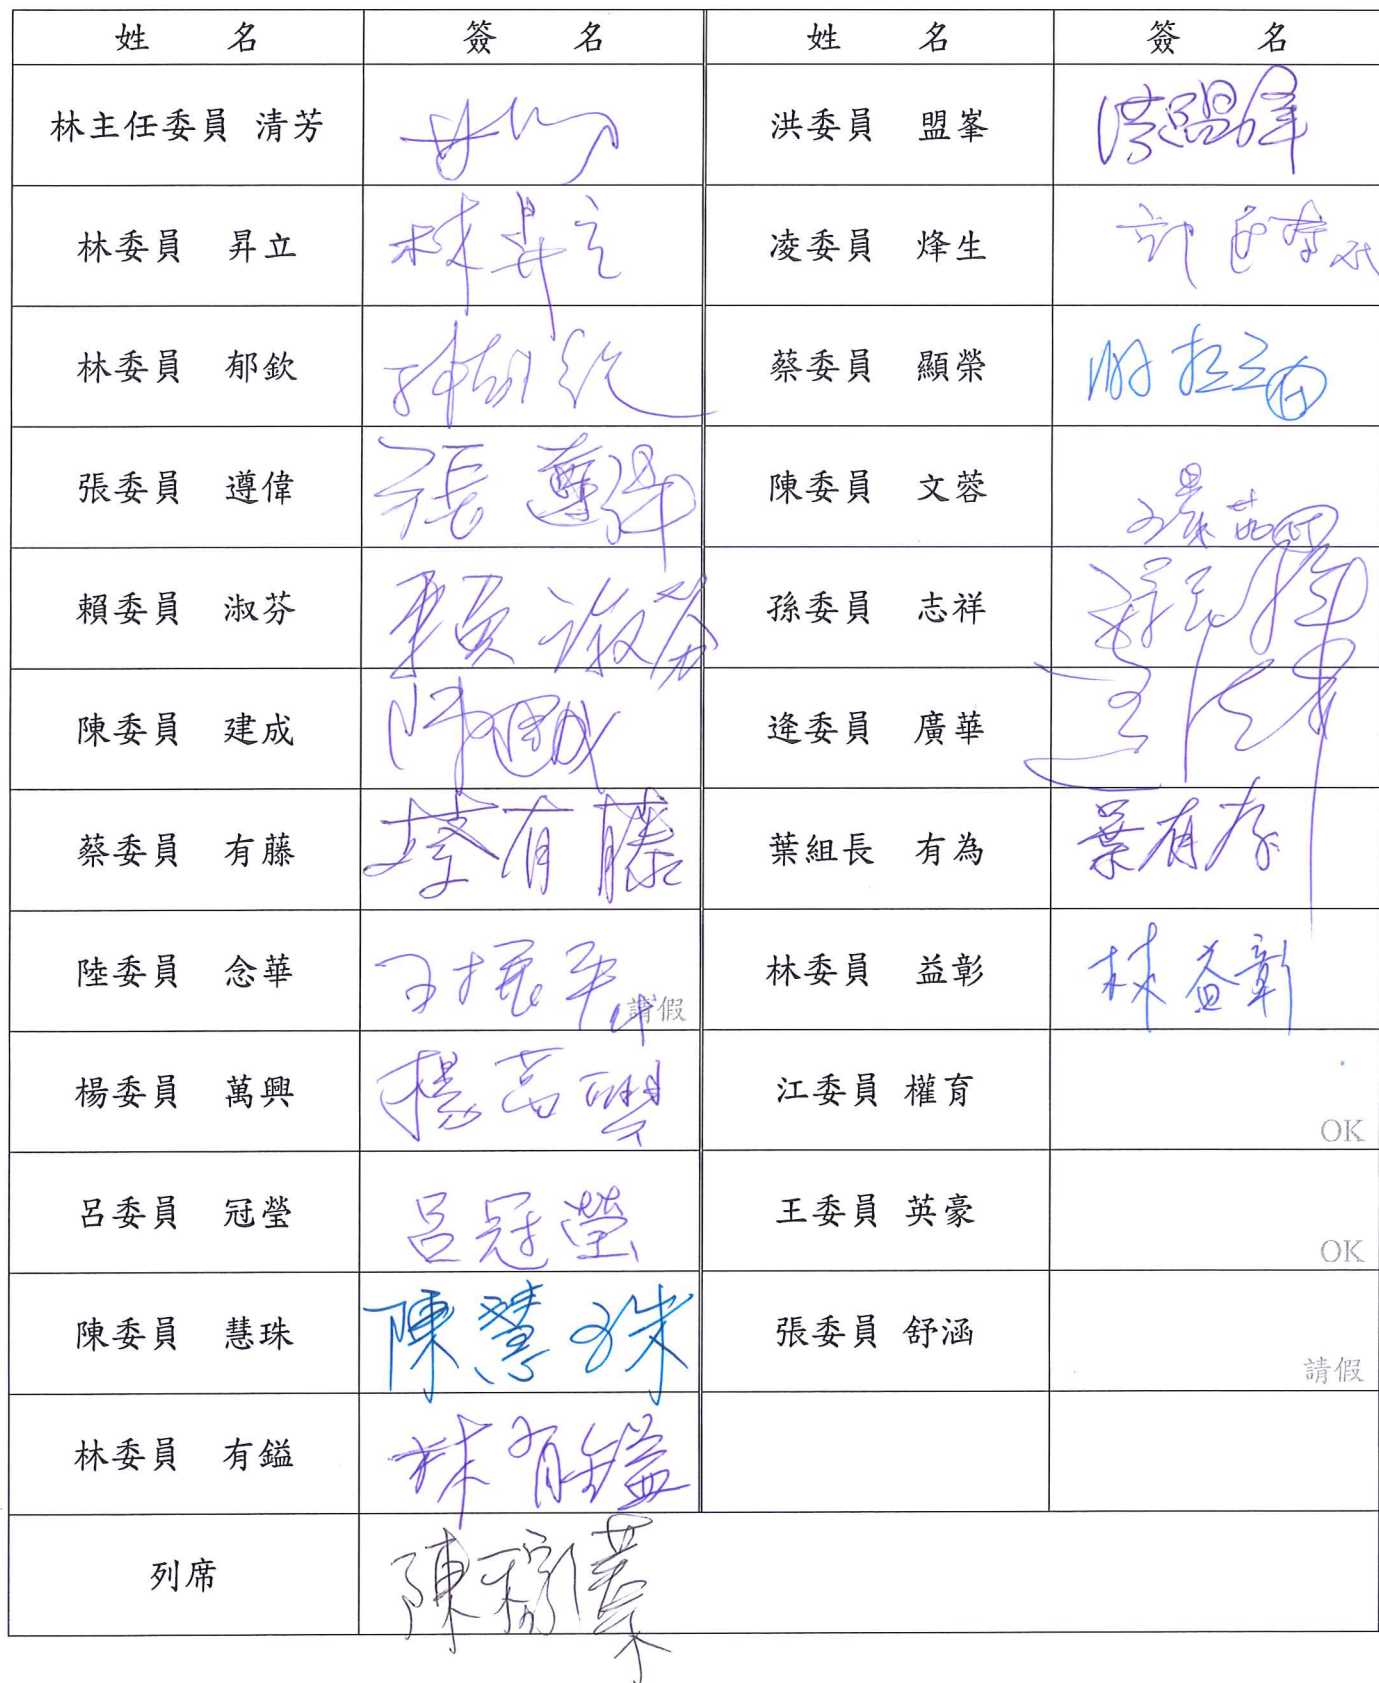 姓 名 簽 名 姓 名 簽 名
林主任委員 清芳 洪委員 盟峯 洪盟峯
林委員 昇立 林昇立 凌委員 烽生
林委員 郁欽 林郁欽 蔡委員 顯榮
張委員 遵偉 張遵偉 陳委員 文蓉
賴委員 淑芬 賴淑芬 孫委員 志祥
陳委員 建成 陳建成 逄委員 廣華
蔡委員 有藤 蔡有藤 葉組長 有為 葉有為
陸委員 念華 請假 林委員 益彰 林益彰
楊委員 萬興 楊萬興 江委員 權育 OK
呂委員 冠瑩 呂冠瑩 王委員 英豪 OK
陳委員 慧珠 陳慧珠 張委員 舒涵 請假
林委員 有鎰 林有鎰
列席